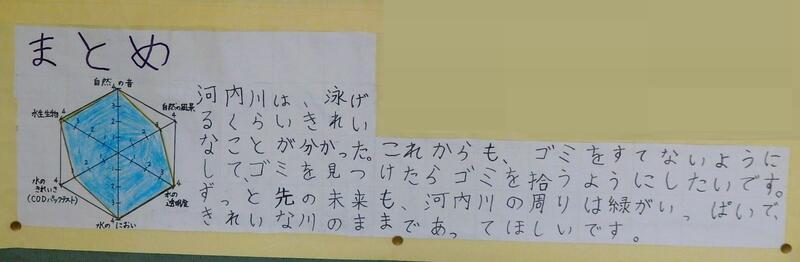 まとめ
自然の音
4
3
2
1
自然の風景
4
3
2
1
水の
透明度
4
3
2
1
水のにおい
4
3
2
1
水の
きれいさ
(CODパックテスト)
4
3
2
1
水生生物
4
3
2
1
河内川は、泳げ
るくらいきれい
なことが分かった。これからも、ゴミをすてないように
して、ゴミを見つけたらゴミを拾うようにしたいです。
ずっと先の未来も、河内川の周りは緑がいっぱいで、
きれいな川のままであってほしいです。